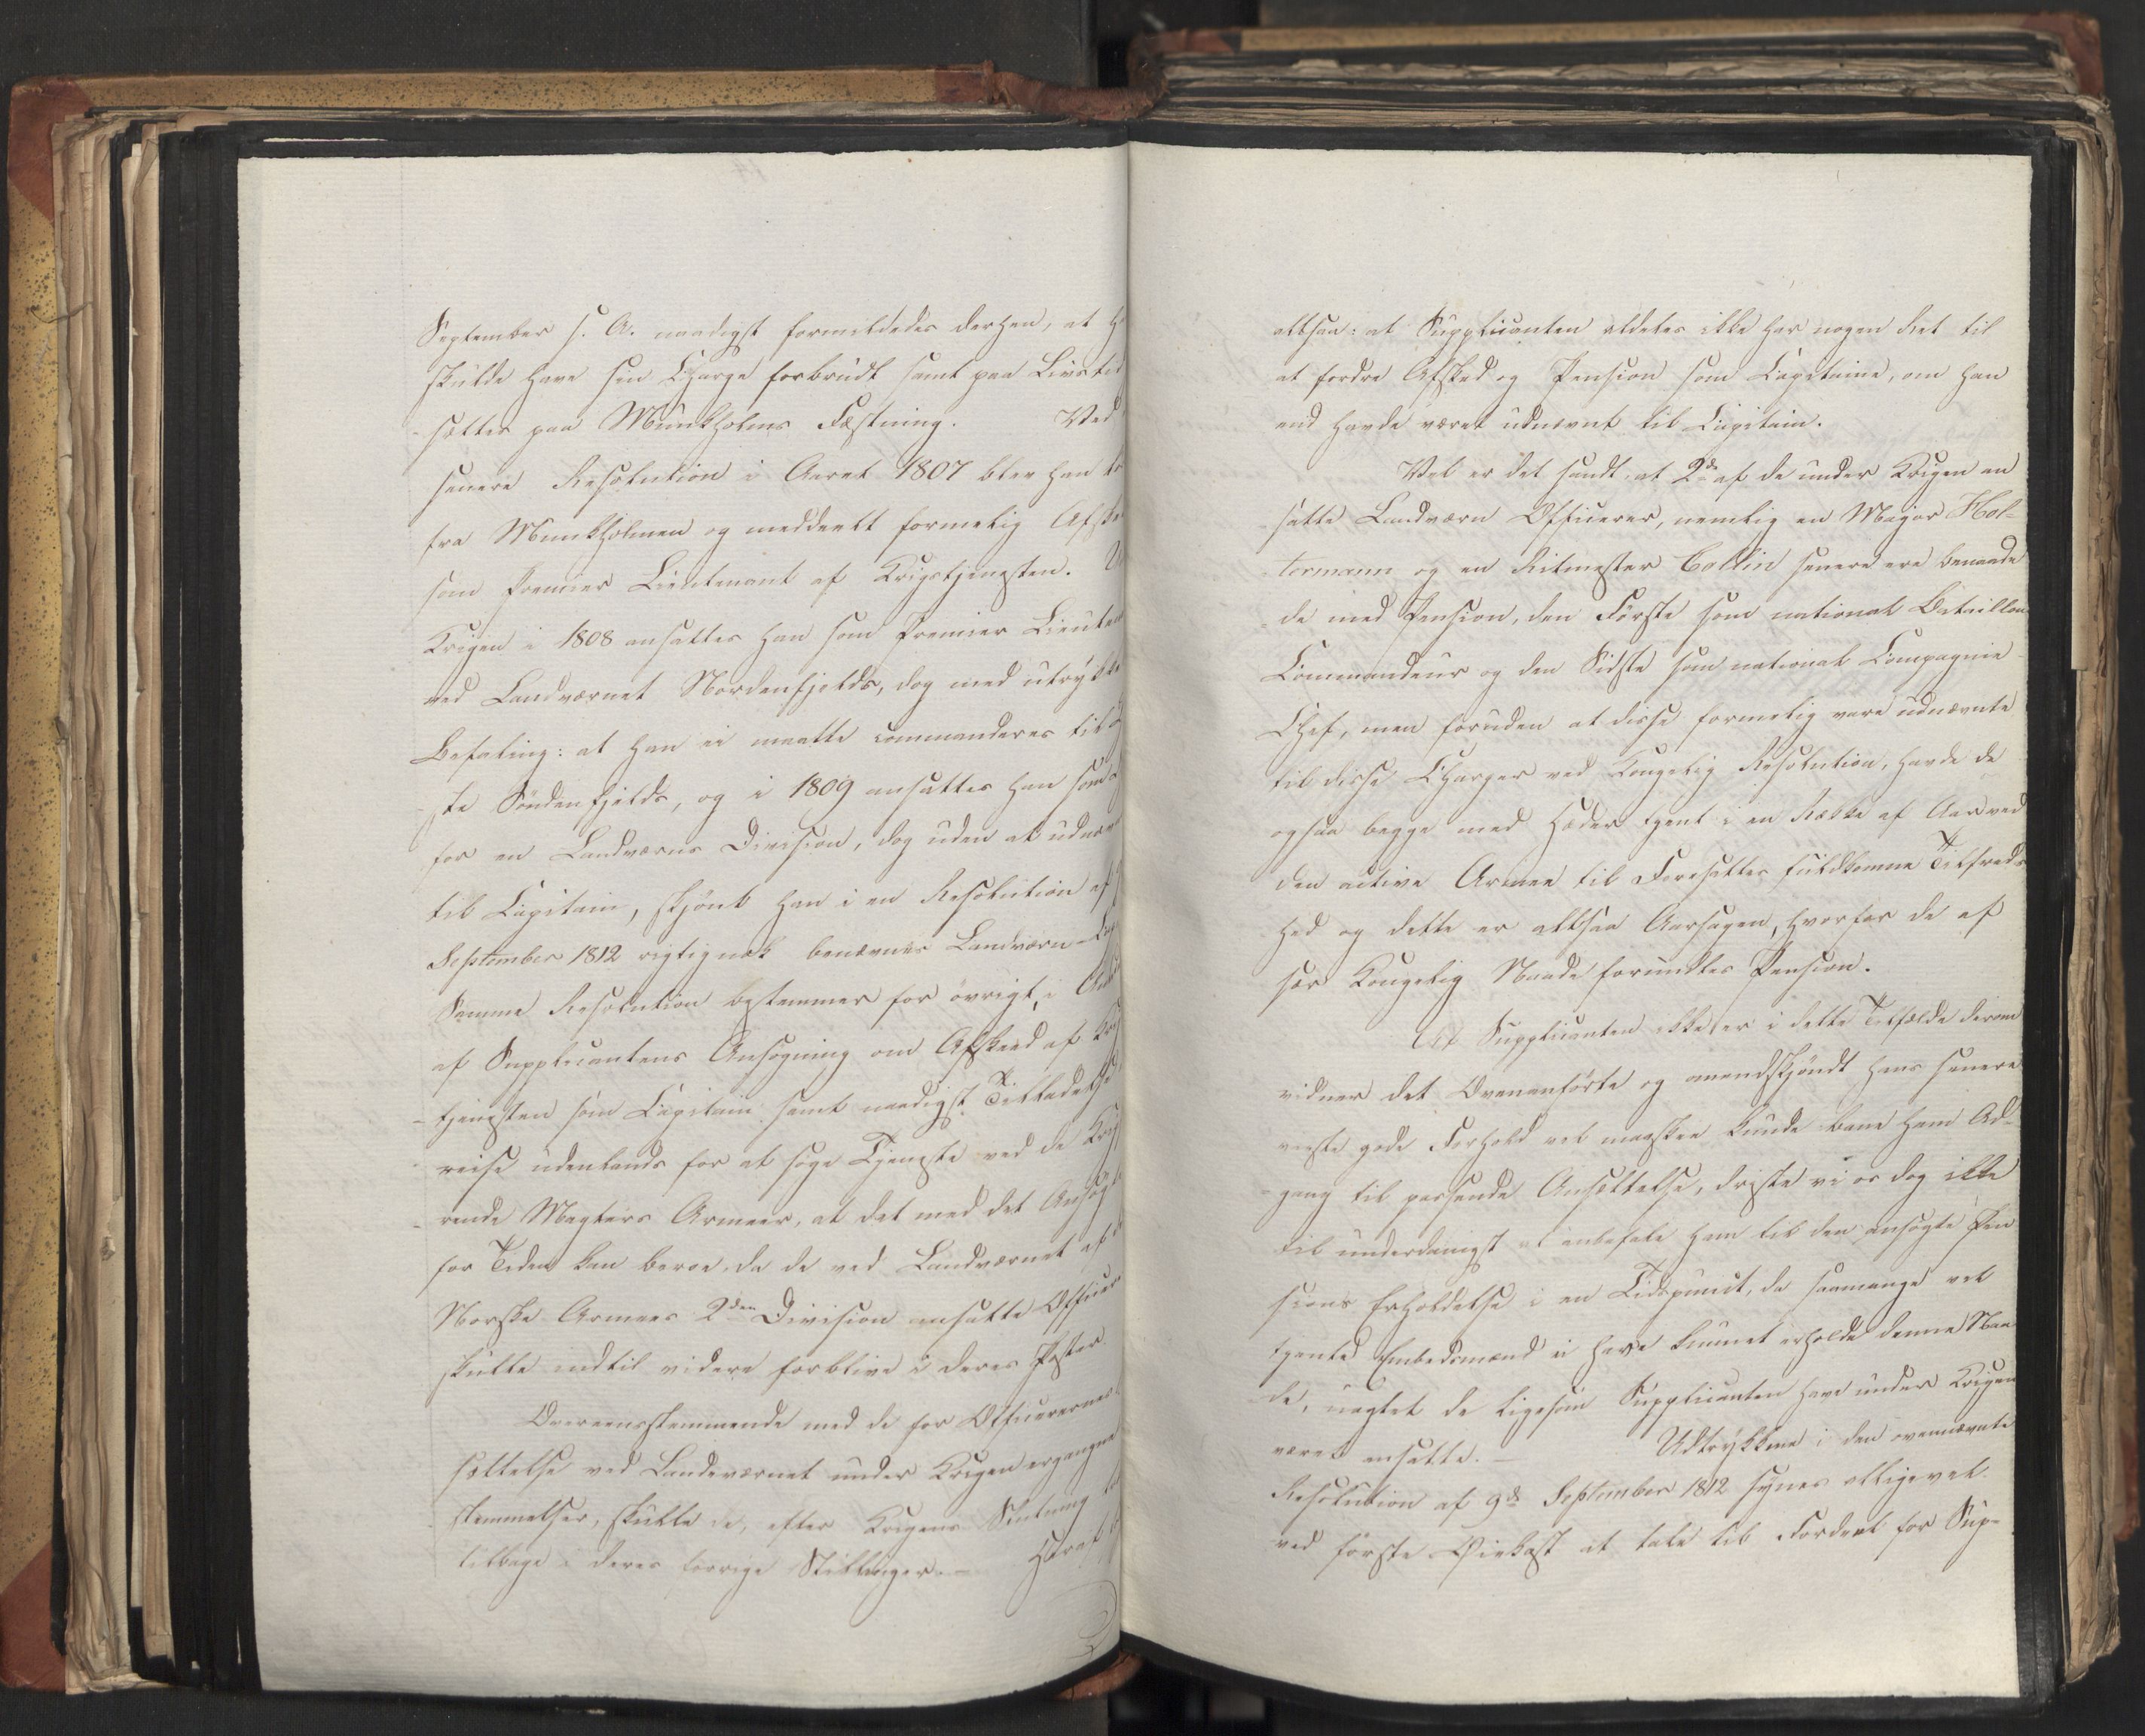 September s. A. naadigst formildedes derhen, at h
skulde have sin Charge forbrudt samt paa Livstid
sættes paa Munkholms Fæstning. Ved
senere Resolution i Aaret 1807 blev han
fra Munkholmen og meddeelt formelig Afske
som Premier Lieutenant af Krigstjenesten. U
Krigen i 1808 ansattes han som Premier Lieute
ved Landværnet Nordenfjelds, dog med utrÿkke
Befaling: at han ei maatte commanderes til
ste Söndenfjelds, og i 1809 ansattes han som
for en Landværns Division, dog uden at udnæv
til Capitain, skjönt han i en Resolution af
September 1812 rigtignok benævnes Landværn-Cap
Samme Resolution bestemmer for övrigt, i
af Supplicantens Ansögning om Afskeed af Kri
tjenesten som Capitain samt naadigst Tilladelse
reise udenlands for at söge Tjeneste ved de Krig
rende Magters Armeer, at det med det Ansögt
for Tiden kan beroe, da de ved Landværnet af
Norske Armees 2den Division ansatte Officer
skulle indtil videre forblive i deres Poster
Overeensstemmende med de for Officerernes
sættelse ved Landeværnet under Krigen ergangne
stemmelser, skulle de, efter Krigens Slutning
tilbage i deres forrige Stillinger. Heraf
altsaa: at Supplicanten aldeles ikke har nogen Ret til
at fordre Afsked og Pension som Capitaine, om han
end havde været udnævnt til Capitain.
Vel er det sandt, at 2de af de under Krigen an
satte Landværn Officerer, nemlig en Major Hol-
termann og en Ritmester Collin senere ere benaade
de med Pension, den Förste som national Bataillon
Commandeur og den Sidste som national Compagnie
Chef, men foruden at disse formelig vare udnævnte
til disse Charger ved Kongelig Resolution, havde de
ogsaa begge med Hæder tjent i en Række af Aar ved
den active Armee til Foresattes fuldkomne Tilfreds
hed og dette er altsaa Aarsagen, hvorfor de af
sær Kongelig Naade forundtes Pension.
At Supplicanten ikke er i dette Tilfælde derom
vidner det Ovenanförte og omendskjöndt hans senere
viiste gode Forhold vel maaskee kunde bane ham Ad-
gang til passende Ansættelse, driste vi os dog ikke
til underdanigst at anbefale ham til den ansögte Pen
sions Erholdelse i en Tidspunct, da saamange vel
tjente Embedsmænd ei have kunnet erholde denne Naa
de, uagtet de ligesom Supplicanten have under Krigen
været ansatte. – Udtrÿkkene i den ovennævnte
Resolution af 9de September 1812 synes alligevel
ved förste Öiekast at tale til Fordeel for Sup-